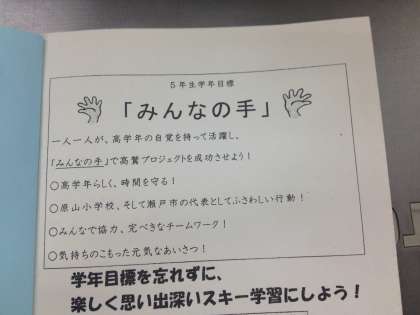 5年生学年目標
「みんなの手」
一人一人が、高学年の自覚を持って活躍し、
「みんなの手」で高鷲プロジェクトを成功させよう!
○高学年らしく、時間を守る!
○原山小学校、そして瀬戸市の代表としてふさわしい行動!
○みんなで協力、完ぺきなチームワーク!
○気持ちのこもった元気なあいさつ!
学年目標を忘れずに、
楽しく思い出深いスキー学習にしよう!